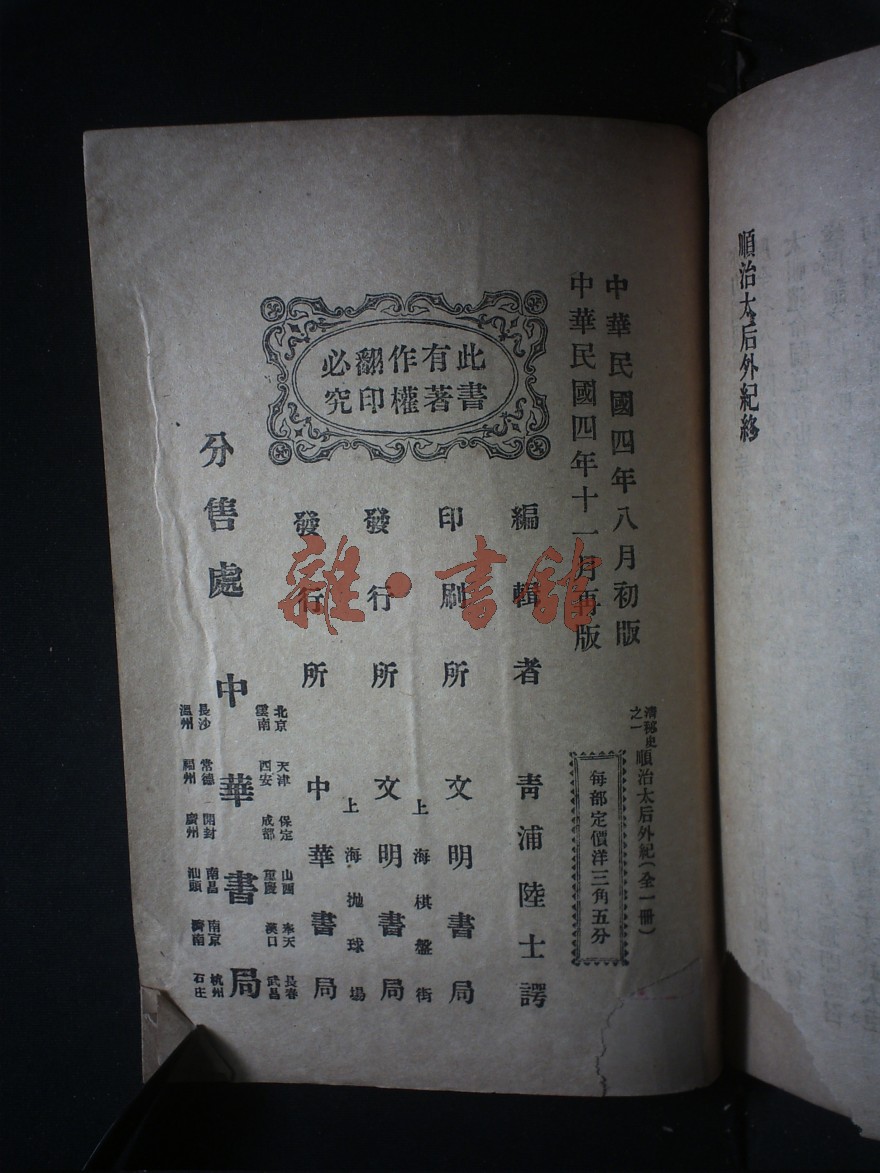 順治太后外紀終
中華民國四年八月初版
中華民國四年十一月再版
清秘史之一
順治太后外紀(全一冊)
每部定價洋三角五分
此書
有著
作權
翻印
必究
編輯者 青浦陸士諤
印刷所 文明書局
上海棋盤街
發行所 文明書局
上海拋球場
發行所 中華書局
分售處 中華書局
北京 天津 保定 山西 奉天 長春
雲南 西安 成都 重慶 漢口 武昌
長沙 常德 開封 南昌 南京 杭州
溫州 福州 廣州 汕頭 濟南 石庄
雜·書館